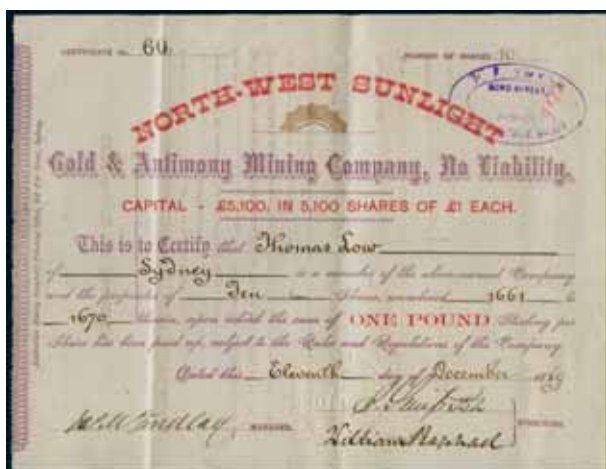 CERTIFICATE No. 60.
NUMBER OF SHARES 10
BOND STREET
NORTH-WEST SUNLIGHT
Gold & Antimony Mining Company, No Liability.
CAPITAL - £5,100, IN 5,100 SHARES OF £1 EACH.
This is to Certify that Thomas Low
of Sydney is a member of the above-named Company
and the proprietor of Ten Shares, numbered 1661 to
1670, therein, upon which the sum of ONE POUND Sterling per
Share has been paid up, subject to the Rules and Regulations of the Company.
Dated this Eleventh day of December
MANAGER.
William Raphael